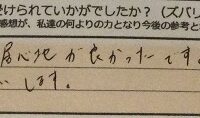 けられていかがでしたか？（ズバリ
感想が、私達の何よりの力となり今後の参考と
居心地が良かったです。
します。